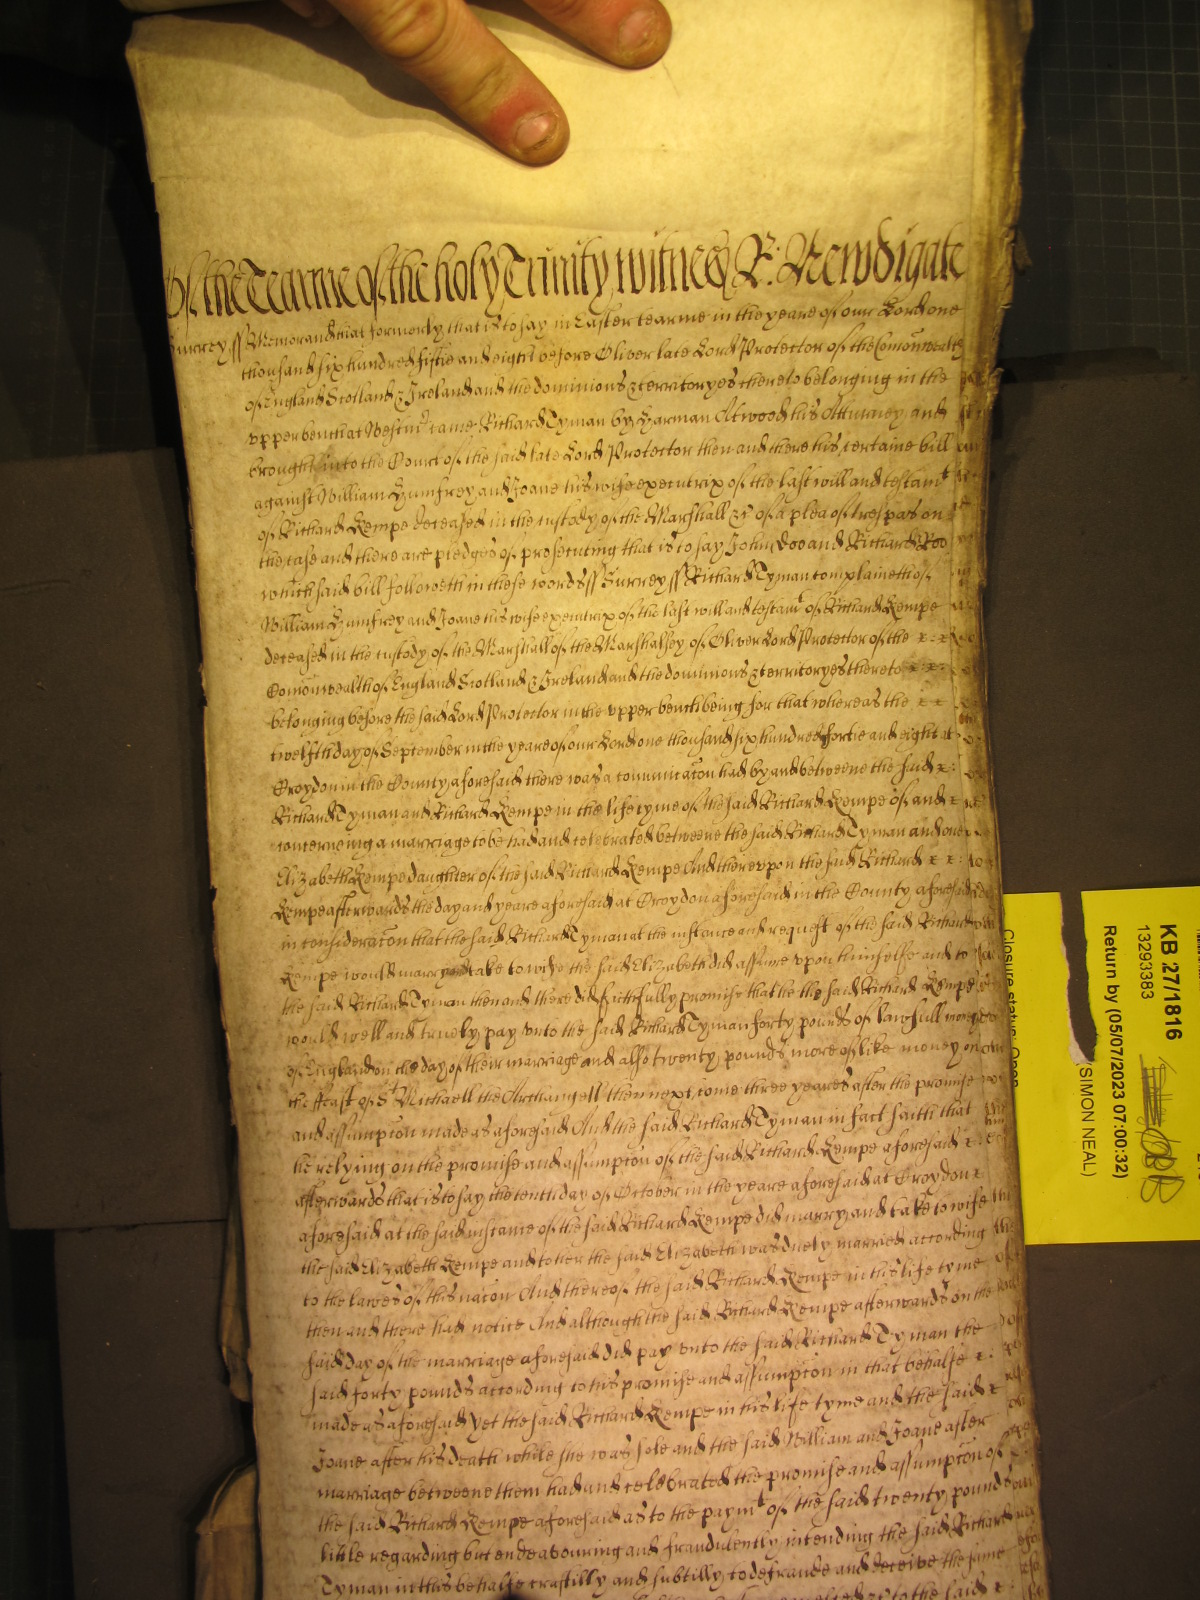 Of the Tearme of the holy Trinity witnes R: Newdigate
Surrey ss Memorand that formerly that is to say in Easter tearme in the yeare of our Lord one
thousand six hundred fiftie and eight before Oliver late Lord Protector of the Comonwealth
of England Scotland & Ireland and the dominions & territoryes thereto belonging in the
upper bench at Westmr came Richard Tyman by Harman Atwood his Atturney and
brought into the Court of the said late Lord Protector then and there his certaine bill
against William Humfrey and Joane his wife executrix of the last will and testamt
of Richard Kempe deceased in the custody of the Marshall &c of a plea of trespas on
the case and there are pledges of prosecuting that is to say John Doo and Richard Roo
which said bill followeth in these words ss Surrey ss Richard Tyman complaineth of
William Humfrey and Joane his wife executrix of the last will and testamt of Richard Kempe
deceased in the custody of the Marshall of the Marshalsey of Oliver Lord Protector of the
Comonwealth of England Scotland & Ireland and the dominions & territoryes thereto
belonging before the said Lord Protector in the upper bench being for that whereas the
twelfth day of September in the yeare of our Lord one thousand six hundred fortie and eight at
Croydon in the County aforesaid there was a comunicacon had by and betweene the said
Richard Tyman and Richard Kempe in the life tyme of the said Richard Kempe of and
concerneing a marriage to be had and celebrated betweene the said Richard Tyman and one
Elizabeth Kempe daughter of the said Richard Kempe And thereupon the said Richard
Kempe afterwards the day and yeare aforesaid at Croydon aforesaid in the County aforesaid
in consideracon that the said Richard Tyman at the instance and request of the said Richard
Kempe would marry and take to wife the said Elizabeth did assume upon himselfe and to
the said Richard Tyman then and there did faithfully promise that he the said Richard Kempe
would well and truely pay unto the said Richard Tyman forty pounds of lawfull money
of England on the day of their marriage and also twenty pounds more of like money on
the ffeast of St Michaell the Archangell then next come three yeares after the promise
and assumpcon made as aforesaid And the said Richard Tyman in fact saith that
he relying on the promise and assumpcon of the said Richard Kempe aforesaid
afterwards that is to say the tenth day of October in the yeare aforesaid at Croydon
aforesaid at the said instance of the said Richard Kempe did marry and take to wife
the said Elizabeth Kempe and to her the said Elizabeth was duely married according
to the lawes of this nacon And thereof the said Richard Kempe in his life tyme
then and there had notice And although the said Richard Kempe afterwards on the
said day of the marriage aforesaid did pay unto the said Richard Tyman the
said forty pounds according to his promise and assumpcon in that behalfe
made as aforesaid yet the said Richard Kempe in his life tyme and the said
Joane after his death while she was sole and the said William and Joane after
marriage betweene them had and celebrated the promise and assumpcon of
the said Richard Kempe aforesaid as to the paymt of the said twenty pounds
little regarding but endeavouring and fraudulently intending the said Richard
Tyman in this behalfe craftilly and subtilly to defraude and deceive the same
to the said
KB 27/1816
13293383
Return by (05/07/2023 07:00:32)
(SIMON NEAL)
Closure status: Open